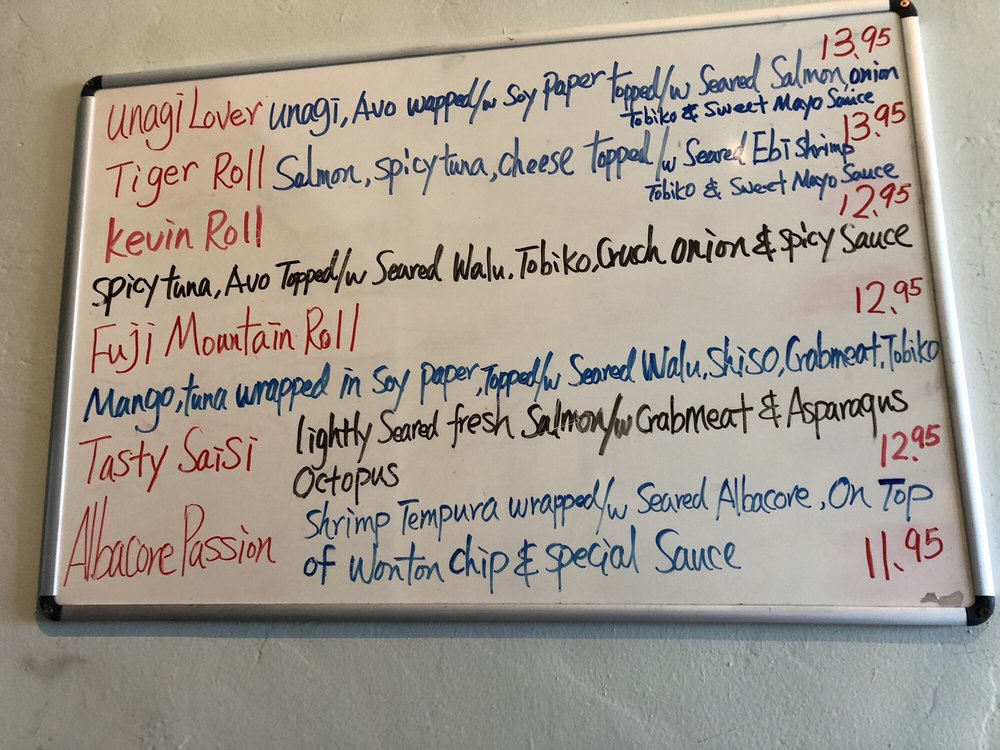 13.95
Unagi Lover Unagi, Avo wapped/w Soy Paper topped/w Seared Salmon, onion
Tobiko & Sweet Mayo Sauce
13.95
Tiger Roll Salmon, spicy tuna, cheese topped/w Seared Ebi Shrimp
Tobiko & Sweet Mayo Sauce
12.95
Kevin Roll
Spicy tuna, Avo Topped/w Seared Walu. Tobiko, Cruch onion & Spicy Sauce
12.95
Fuji Mountain Roll
Mango, tuna wrapped in Soy paper, Topped/w Seared Walu, Shiso, Crabmeat, Tobiko
Tasty Saisi lightly Seared fresh Salmon/w Crabmeat & Asparagus
Octopus
12.95
Albacore Passion Shrimp Tempura wrapped/w Seared Albacore, On Top
of Wonton chip & special Sauce
11.95